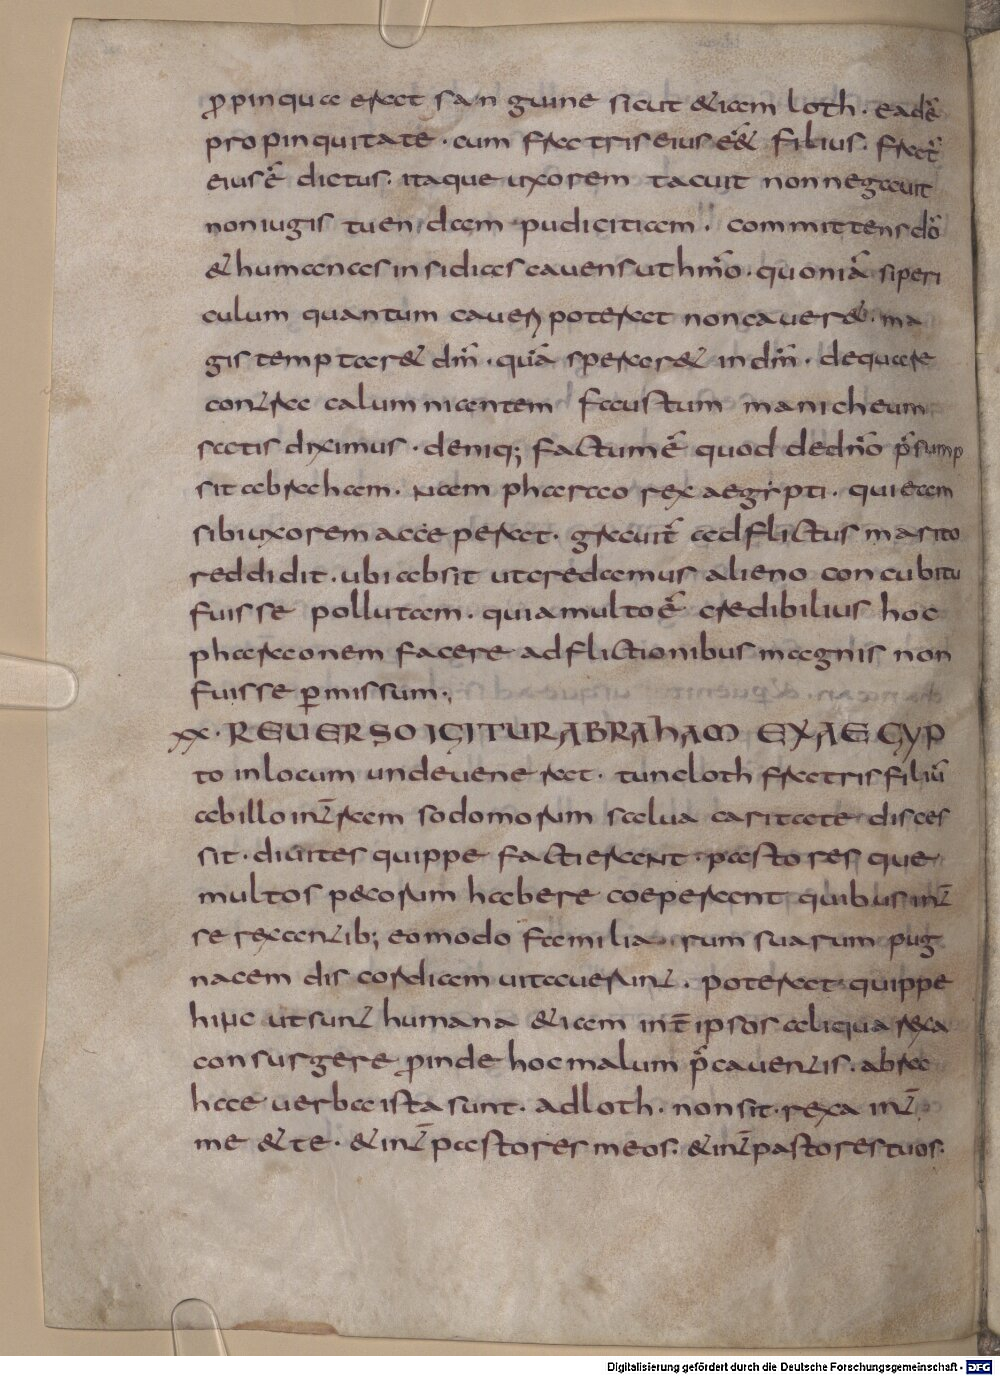 ꝓpinqua erat sanguine sicut &iam loth· eadē
propinquitate· cum fratris eius eēt filius· frat̄
eius ē dictus· itaque uxorem tacuit non negauit
non iugis tuendam pudicitiam· committens dō
& humanas insidias cauens ut hmō· quoniā si peri
culum quantum caueri poterat non cauer&· ma
gis temptar& dm̄· quā sperar& in dm̄· de qua re
contra calumniantem faustum manicheum
satis diximus· deniq; factum ē quod de dnō p̄sump
sit abraham· nam pharao rex aegypti· qui eam
sibi uxorem acceperat· grauit̄ adflictus marito
reddidit· ubi absit ut credamus alieno concubitu
fuisse pollutam· quia multo ē credibilius hoc
pharaonem facere adflictionibus magnis non
fuisse ꝑmissum·
XX· REUERSO IGITUR ABRAHAM EX AEGYP
to in locum unde uenerat· tunc loth fratris filiū
ab illo in terram sodomorum salua caritate disces
sit· diuites quippe facti erant· pastores que
multos pecorum habere coeperant quibus int̄
se rixantib; eo modo familiarum suarum pug
nacem discordiam uitauerunt· poterat quippe
hinc ut sunt humana &iam int̄ ipsos aliqua rixa
consurgere ꝓinde hoc malum p̄cauentis· abra
hae uerba ista sunt· ad loth· non sit rixa int̄
me & te· & int̄ pastores meos· & int̄ pastores tuos·
Digitalisierung gefördert durch die Deutsche Forschungsgemeinschaft - DFG